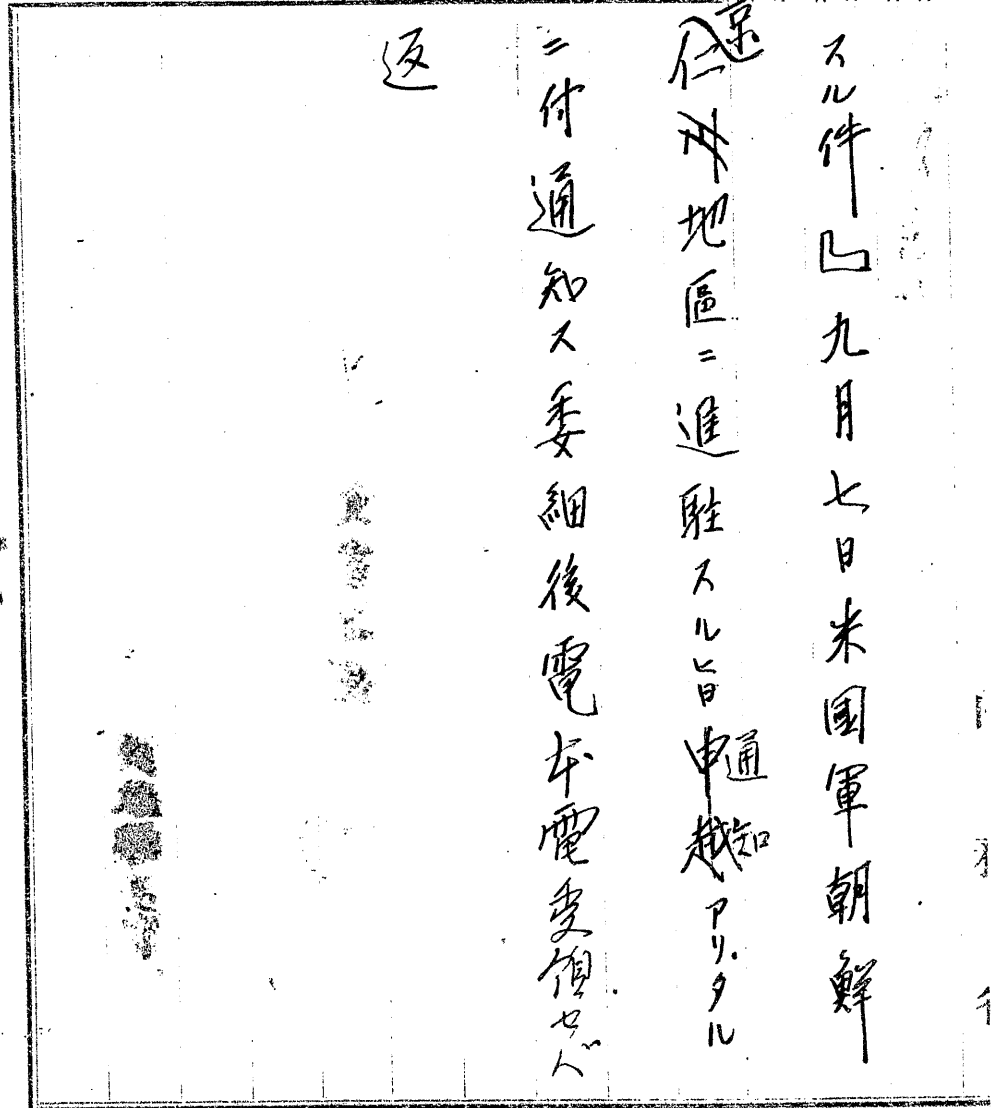 スル件』九月七日米國軍朝鮮
京仁川地區ニ進駐スル旨申越通知アリタル
ニ付通知ス委細後電本電受領セバ
返